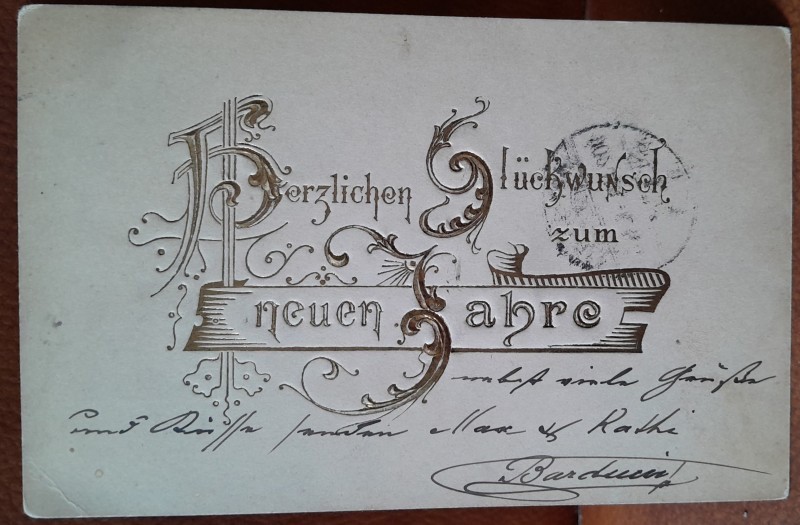 Herzlichen Glückwunsch
zum
neuen Jahre
nebst viele Grüße
und Küsse senden Max & Kathi